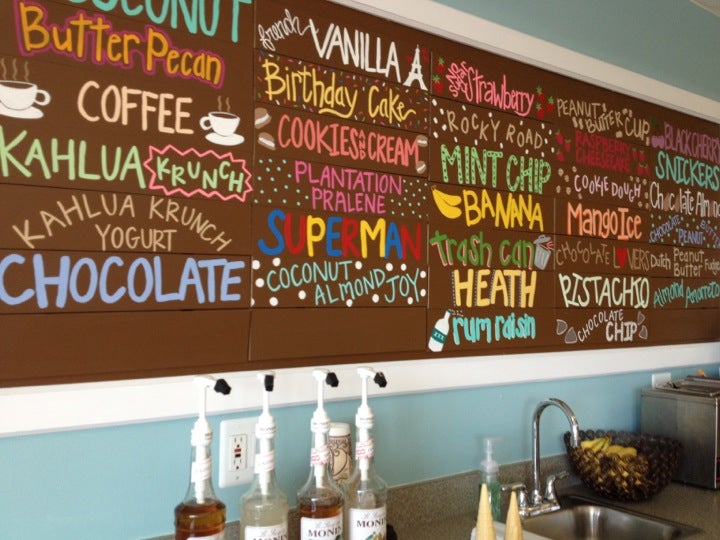 COCONUT
Butter Pecan
COFFEE
KAHLUA KRUNCH
KAHLUA KRUNCH
YOGURT
CHOCOLATE
french VANILLA
Birthday Cake
COOKIES AND CREAM
PLANTATION
PRALENE
SUPERMAN
COCONUT
ALMOND JOY
Strawberry
ROCKY ROAD
MINT CHIP
BANANA
trash can
HEATH
rum raisin
PEANUT BUTTER CUP
RASPBERRY
CHEESECAKE
COOKIE DOUGH
Mango Ice
CHOCOLATE LOVERS
PISTACHIO
CHOCOLATE
CHIP
BLACK CHERRY
SNICKERS
Chocolate Almond
CHOCOLATE
PEANUT
Dutch Peanut
Butter Fudge
Almond Amaretto
MONIN
MONIN